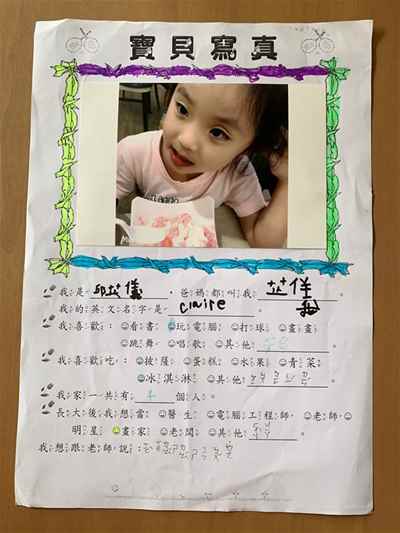 寶貝寫真
我是 邱苡儀 。爸媽都叫我
我的英文名字是 claire 。
我喜歡：☺看書 ☺玩電腦 ☺打球 ☺畫畫
☺跳舞 ☺唱歌 ☺其他
我喜歡吃：☺披薩 ☺蛋糕 ☺水果 ☺青菜
☺冰淇淋 ☺其他
我家一共有 4 個人。
長大後我想當 ☺醫生 ☺電腦工程師 ☺老師 ☺
明星 ☺畫家 ☺老闆 ☺其他
我想跟老師說：